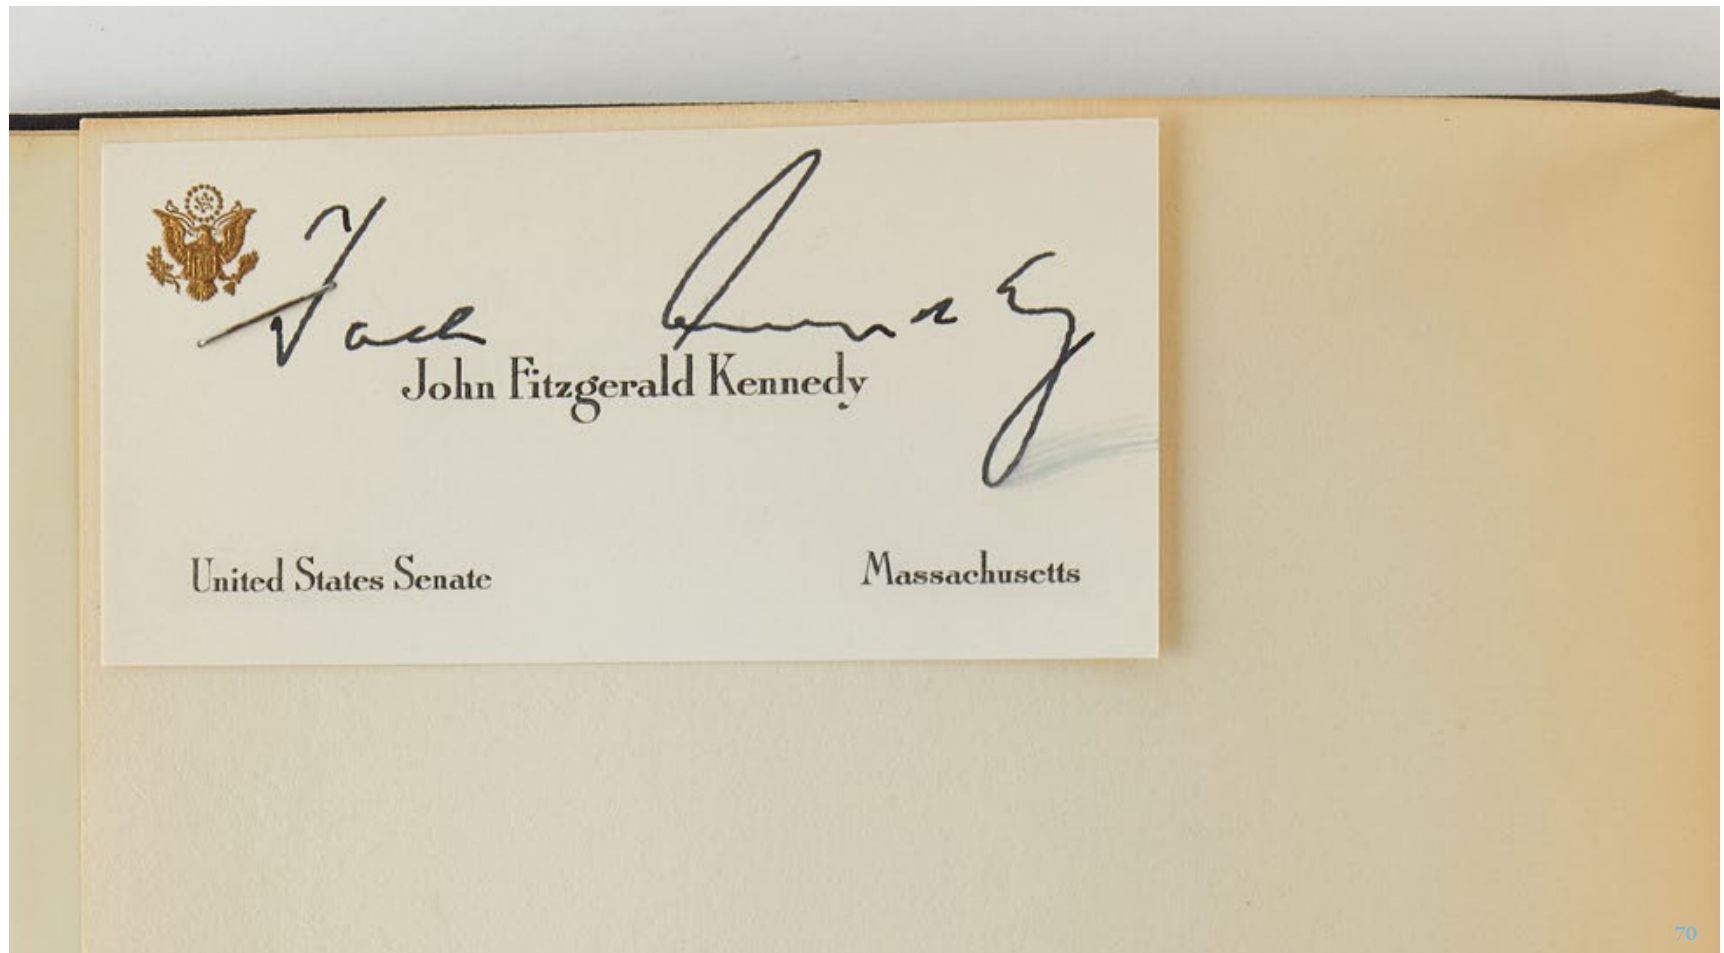 Jack Kennedy
John Fitzgerald Kennedy
United States Senate
Massachusetts
70